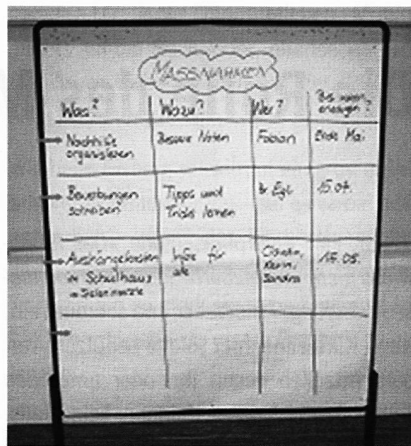 MASSNAHMEN
Was?
Wozu?
Wer?
Bis wann
erledigen?
Nachhilfe
organisieren
Bessere Noten
Fabian
Ende Mai
Bewerbungen
schreiben
Tipps und
Tricks lernen
Egli
15.04.
Aushängekasten
im Schulhaus
Infos für
alle
Karin,
Sandra
15.05.